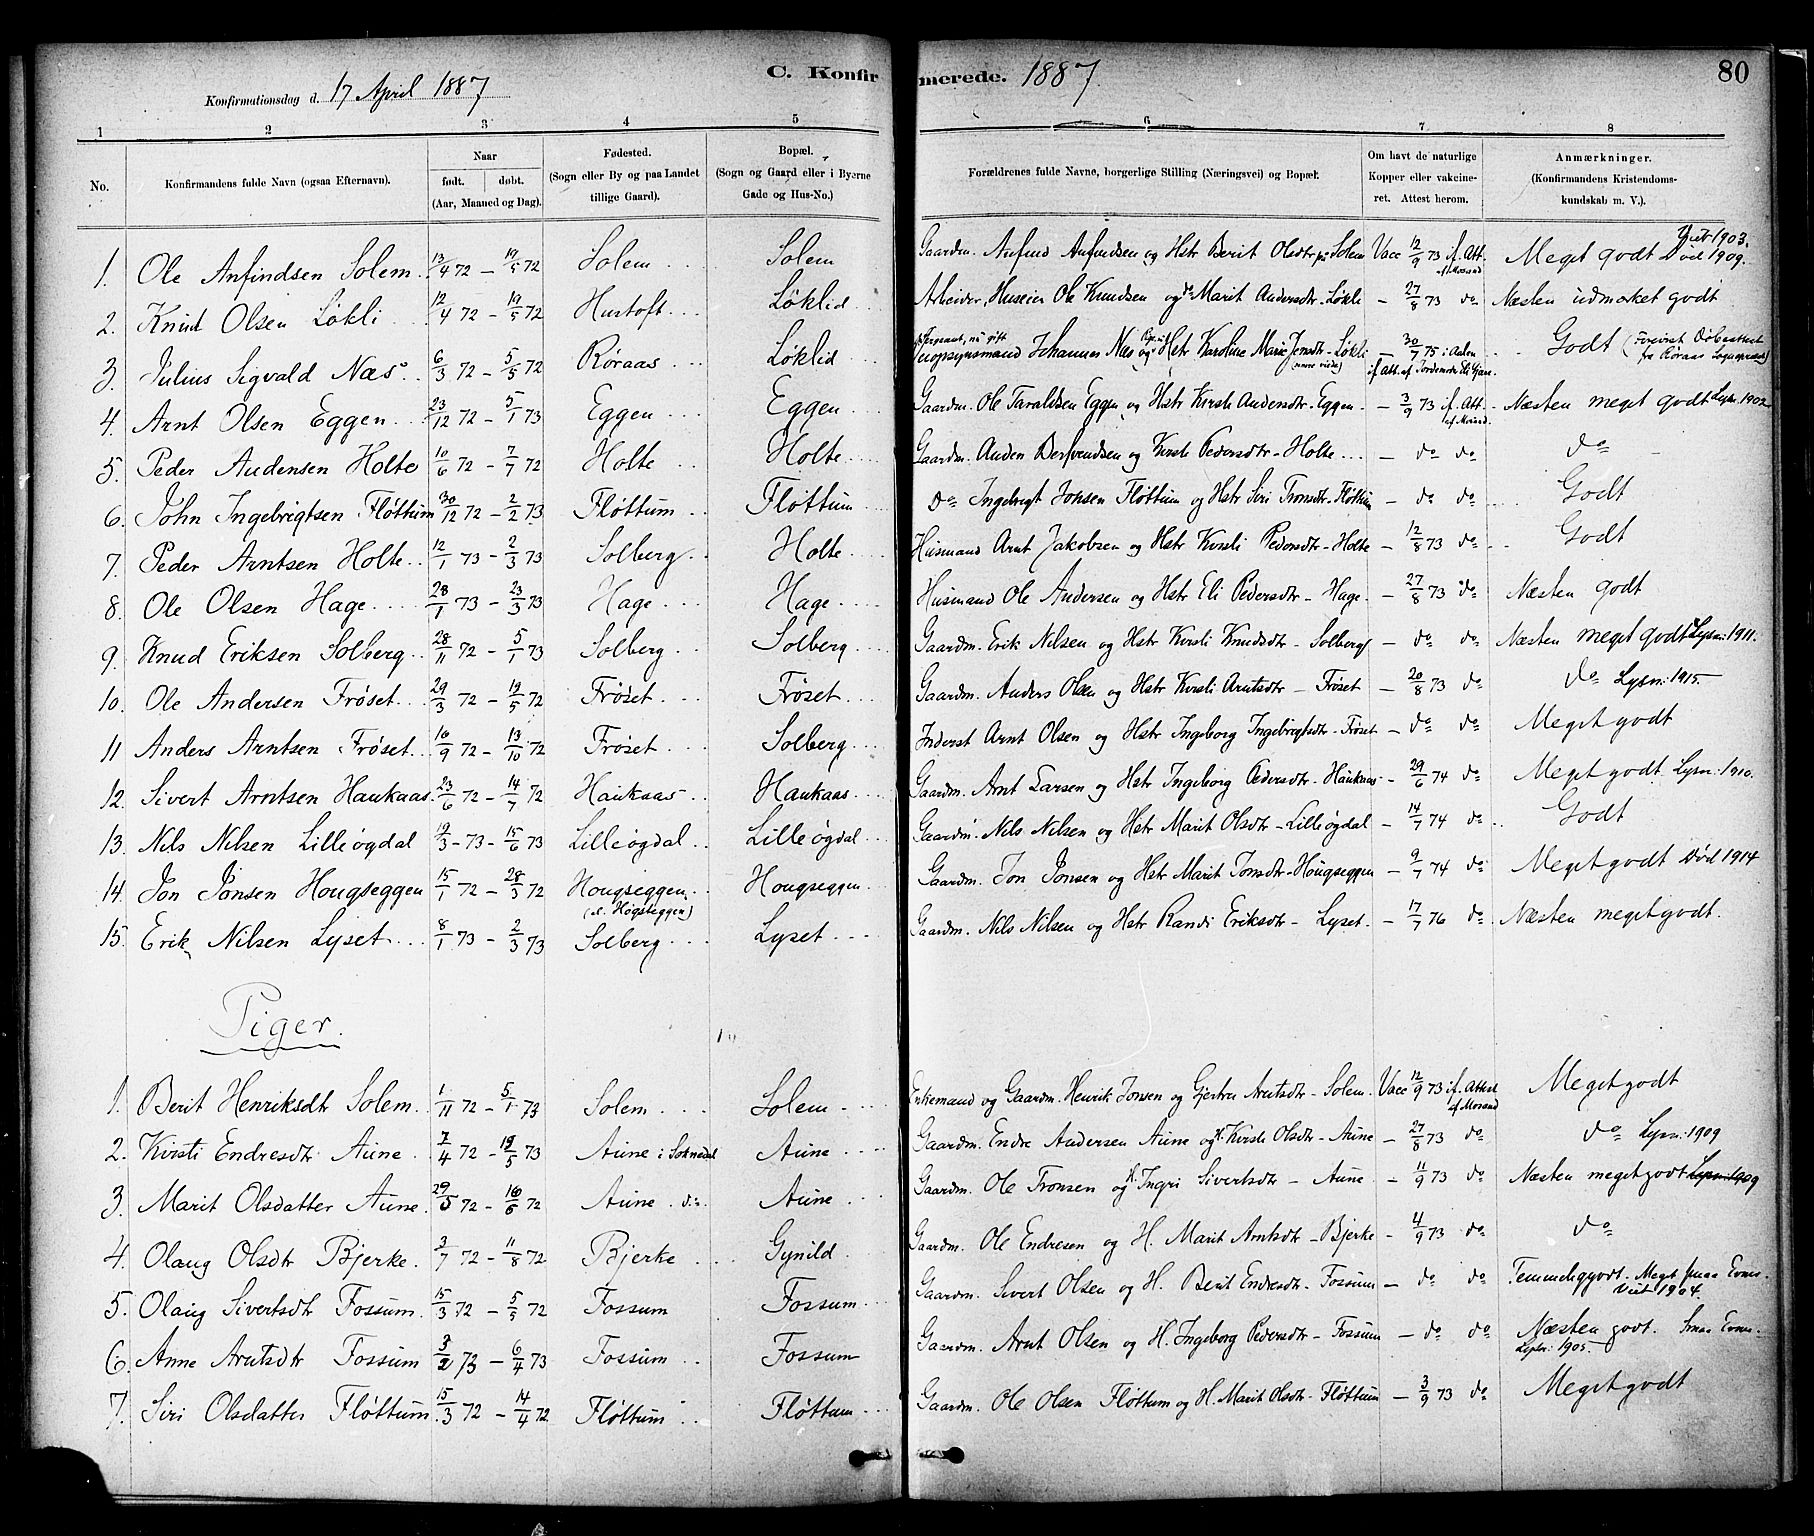 C. Konfirmerede. 1887. 80
Konfirmationsdag d. 17 April 1887
1 2 3 4 5 6 7 8
No. Konfirmandens fulde Navn (ogsaa Efternavn). Naar født. døbt. (Aar, Maaned og Dag). Fødested. (Sogn eller By og paa Landet tillige Gaard). Bopæl. (Sogn og Gaard eller i Byerne Gade og Hus-No.) Forældrenes fulde Navne, borgerlige Stilling (Næringsvei) og Bopæl. Om havt de naturlige Kopper eller vakcineret. Attest herom. Anmærkninger. (Konfirmandens Kristendomskundskab m. V.).
1. Ole Anfindsen Solem 13/4 72 – 19/5 72 Solem Solem Gaardm. Anfind Anfindsen og Hstr Berit Olsdtr på Solem Vacc 12/9 73 if. Att. af Morand Meget godt Viet 1903. Død 1909.
2. Knut Olsen Løkli 12/4 72 – 19/5 72 Hustoft Løklid Arbeider, Huseier Ole Knudsen og do Marit Andersdtr - Løkli – 27/8 73 do Næsten udmærket godt
3. Julius Sigvald Næs 6/3 72 – 5/5 72 Røraas Løklid Opsynsmand Johannes Næs og Hstr Karoline Marie Jensdtr - Løkli – 30/7 75 i Aalen if. Att. af Jordemoder Eli Godt (Forevist Døbeattest fra Røraas Sognepræst)
4. Arnt Olsen Eggen 23/12 72 – 5/1 73 Eggen Eggen Gaardm. Ole Taraldsen Eggen og Hstr Kirsti Andersdtr - Eggen – 3/9 73 if. Att. af Morand. Næsten meget godt Lysn. 1902
5. Peder Andersen Holte 10/6 72 – 7/7 72 Holte Holte Gaardm. Anders Berfvendsen og Kirsti Pedersdtr - Holte – do do do
6. John Ingebrigtsen Fløttum 30/12 72 – 2/2 73 Fløttum Fløttum do Ingebrigt Jonsen Fløttum og Hstr Siri Tronsdtr - Fløttum – do do Godt
7. Peder Arntsen Holte 12/1 73 – 2/3 73 Solberg Holte Husmand Arnt Jakobsen og Hstr Kirsti Pedersdtr - Holte – 12/8 73 do Godt
8. Ole Olsen Hage 28/1 73 – 23/3 73 Hage Hage Husmand Ole Andersen og Hstr Eli Pedersdtr - Hage – 27/8 73 do Næsten godt
9. Knud Eriksen Solberg 28/11 72 – 5/1 73 Solberg Solberg Gaardm. Erik Nilsen og Hstr Kirsti Knudsdtr - Solberg – do do Næsten meget godt Lysn. 1911.
10. Ole Andersen Frøset 29/3 72 – 19/5 72 Frøset Frøset Gaardm. Anders Olsen og Hstr Kirsti Arntsdtr - Frøset – 20/8 73 do do Lysn. 1915.
11 Anders Arntsen Frøset 16/9 72 – 13/10 72 Frøset Solberg Inderst Arnt Olsen og Hstr Ingeborg Ingebrigtsdtr - Frøset – do do Meget godt
12. Sivert Arntsen Haukaas 23/6 72 – 14/7 72 Haukaas Haukaas Gaardm. Arnt Larsen og Hstr Ingeborg Pedersdtr - Haukaas – 29/6 74 do Meget godt Lysn. 1910.
13. Nils Nilsen Lilleøgdal 19/3 - 73 – 15/6 73 Lilleøgdal Lilleøgdal Gaardm. Nils Nilsen og Hstr Marit Olsdtr - Lilleøgdal – 14/7 74 do Godt
14. Jon Jonsen Hougseggen 15/1 72 – 28/3 72 Hougseggen (el. Høgseggen) Hougseggen Gaardm. Jon Jonsen og Hstr Marit Jonsdtr - Hougseggen – 9/7 74 do Meget godt Død 1914
15. Erik Nilsen Lyset 8/1 73 – 2/3 73 Solberg Lyset Gaardm. Nils Nilsen og Hstr Randi Eriksdtr - Lyset – 17/7 76 do Næsten meget godt.
Piger.
1. Berit Henriksdtr Solem 1/11 72 – 5/1 73 Solem Solem Enkemand og Gaardm. Henrik Jonsen og Gjertru Arntsdtr - Solem Vacc 12/9 73 if. Attest af Morand Meget godt
2. Kirsti Endresdtr Aune 7/4 72 – 19/5 73 Aune i Soknedal Aune Gaardm. Endre Andersen Aune og H. Kirsti Olsdtr - Aune – 27/8 73 do do Lysn. 1909
3. Marit Olsdatter Aune 29/5 72 – 16/6 72 Aune do Aune Gaardm. Ole Tronsen og H. Ingri Sivertsdtr - Aune – 11/9 73 do Næsten meget godt Lysn. 1909
4. Olaug Olsdtr Bjerke 3/7 72 – 11/8 72 Bjerke Gynild Gaardm. Ole Endresen og H. Marit Arntsdtr - Bjerke – 4/9 73 do do
5. Olaug Sivertsdtr Fossum 15/3 72 – 5/5 72 Fossum Fossum Gaardm. Sivert Olsen og H. Berit Endresdtr - Fossum – do do Temmelig godt. Meget smaa Evner. Viet 1904.
6. Anne Arntsdtr Fossum 3/2 73 – 6/4 73 Fossum Fossum Gaardm. Arnt Olsen og H. Ingeborg Pedersdtr - Fossum – do do Næsten godt. Smaa Evner. Lysn. 1905.
7. Siri Olsdatter Fløttum 15/3 72 – 14/4 72 Fløttum Fløttum Gaardm. Ole Olsen Fløttum og H. Marit Olsdtr - Fløttum – 3/9 73 do Meget godt